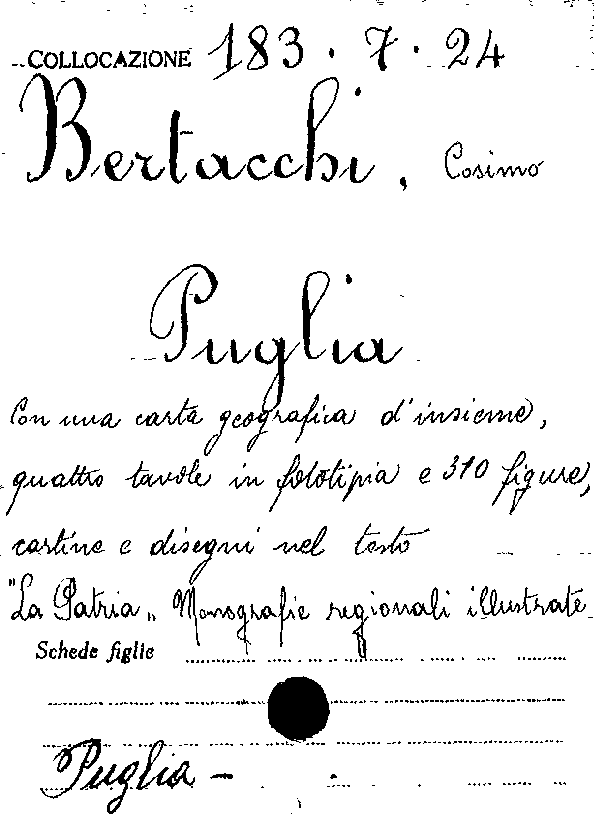 COLLOCAZIONE 183.7.24
Bertacchi, Cosimo
Puglia
Con una carta geografica d'insieme,
quattro tavole in fototipia e 310 figure,
cartine e disegni nel testo
"La Patria„ Monografie regionali illustrate
Schede figlie
Puglia -